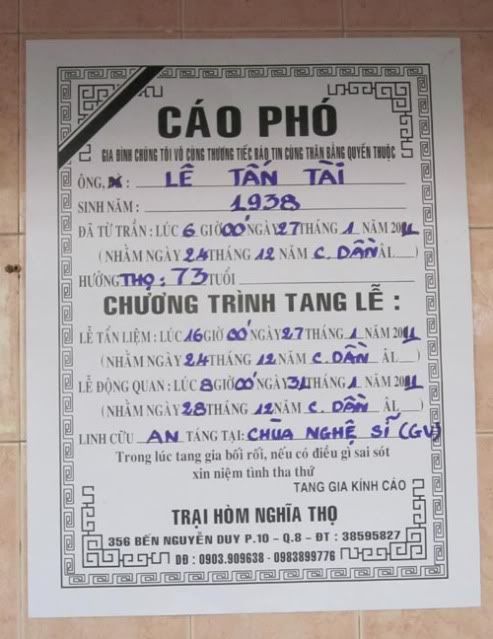 CÁO PHÓ
GIA ĐÌNH CHÚNG TÔI VÔ CÙNG THƯƠNG TIẾC BÁO TIN CÙNG THÂN BẰNG QUYẾN THUỘC
ÔNG, : LÊ TẤN TÀI
SINH NĂM : 1938
ĐÃ TỪ TRẦN : LÚC 6 GIỜ 00' NGÀY 27 THÁNG 1 NĂM 2011
(NHẰM NGÀY 24 THÁNG 12 NĂM C. DẦN ÂL )
HƯỞNG THỌ : 73 TUỔI
CHƯƠNG TRÌNH TANG LỄ :
LỄ TẨN LIỆM : LÚC 16 GIỜ 00' NGÀY 27 THÁNG 1 NĂM 2011
(NHẰM NGÀY 24 THÁNG 12 NĂM C. DẦN ÂL )
LỄ ĐỘNG QUAN : LÚC 8 GIỜ 00' NGÀY 31 THÁNG 1 NĂM 2011
(NHẰM NGÀY 28 THÁNG 12 NĂM C. DẦN ÂL )
LINH CỮU AN TÁNG TẠI : CHÙA NGHỆ SĨ (GV)
Trong lúc tang gia bối rối, nếu có điều gì sai sót
xin niệm tình tha thứ
TANG GIA KÍNH CÁO
TRẠI HÒM NGHĨA THỌ
356 BẾN NGUYỄN DUY P.10 - Q.8 - ĐT : 38595827
DĐ : 0903.909638 - 0983899776